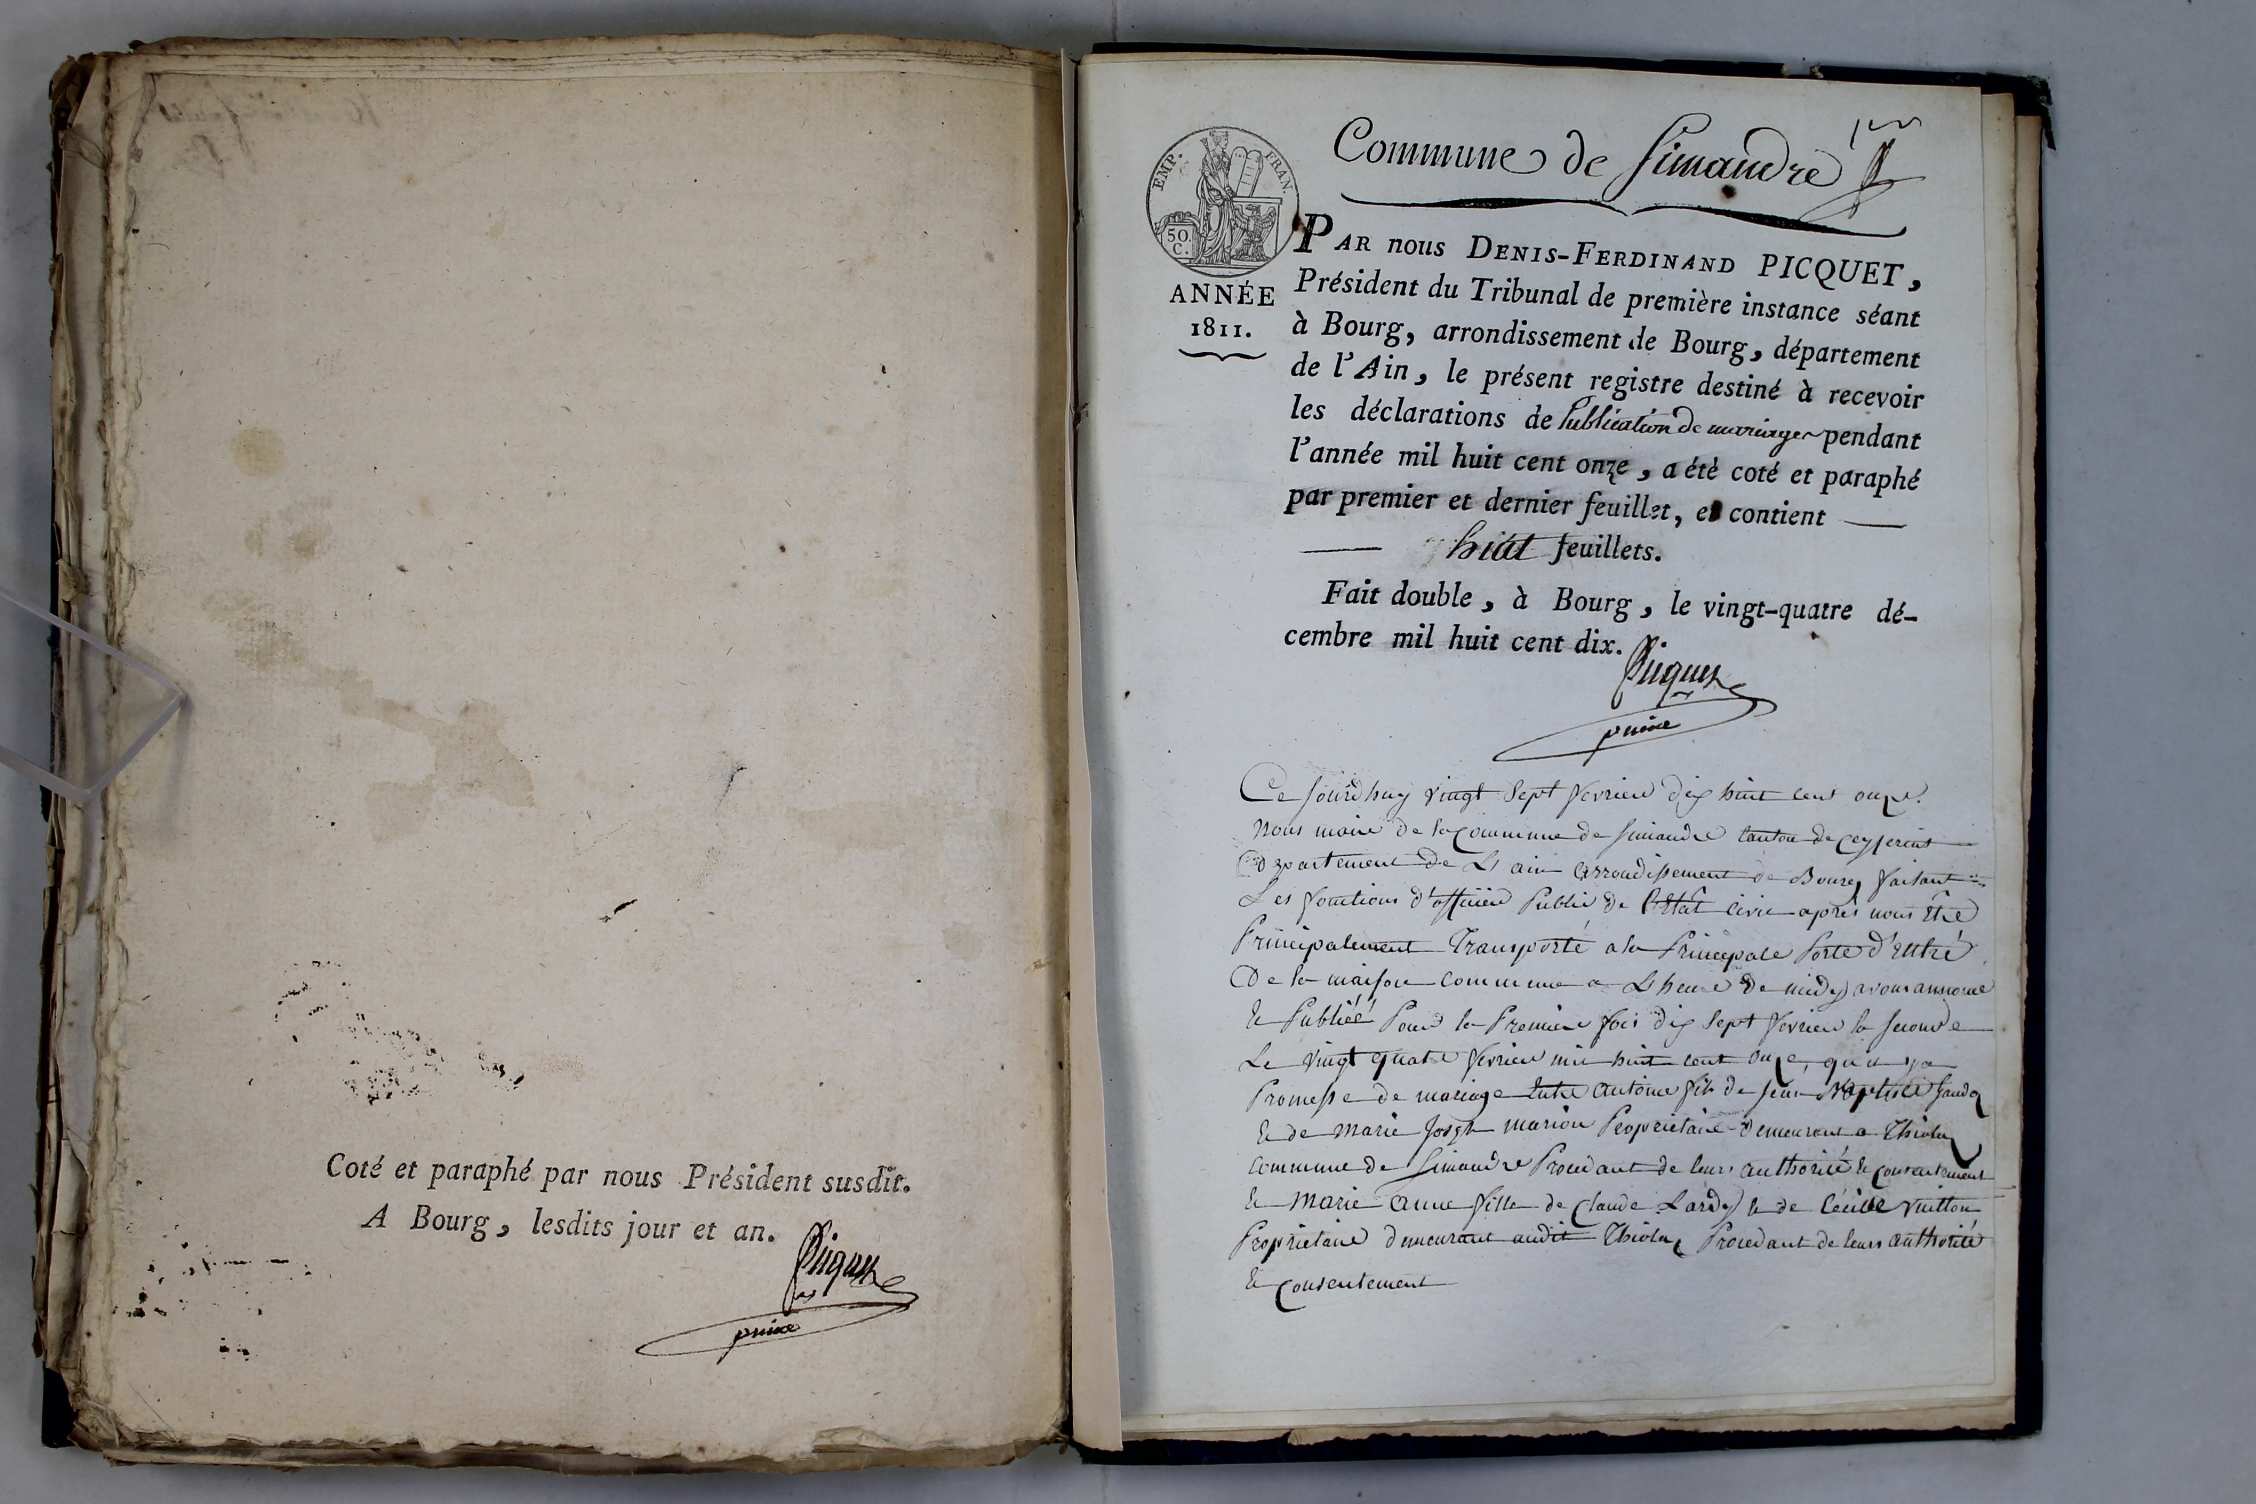 Coté et paraphé par nous Président susdit.
A Bourg, lesdits jour et an.
Picquet
Commune de Simandre
1er
EMP. FRAN.
50
C.
ANNÉE
1811.
PAR nous DENIS-FERDINAND PICQUET,
Président du Tribunal de première instance séant
à Bourg, arrondissement de Bourg, département
de l'Ain, le présent registre destiné à recevoir
les déclarations de Publication de mariages pendant
l'année mil huit cent onze, a été coté et paraphé
par premier et dernier feuillet, et contient —
— huit feuillets.
Fait double, à Bourg, le vingt-quatre dé-
cembre mil huit cent dix.
Picquet
Ce Jourdhuy vingt Sept fevrier dix huit cent onze.
Nous maire de la Commune de Simandre Canton de Ceyseriat
Departement de L'ain arrondissement de Bourg faisant
Les fonctions d'officier Public de l'Etat Civil après nous Etre
Principalement Transporté a la Principale Porte d'Entré
De la maison Commune a L'heure de midy avons annoncé
Et Publiéé Pour la Premiere fois dix Sept fevrier la Seconde
Le vingt quatre fevrier mil huit cent onze, qu'il y a
Promesse de mariage Entre Antoine fils de Jean Baptiste
Et de Marie Joseph marion Proprietaire demeurant a
Commune de Simandre Procedant de leurs authorité Et Consentement
Et Marie Anne fille de Claude Lardy Et de Cécille vuitton
Proprietaire demeurant audit Procedant de leurs authorité
Et Consentement